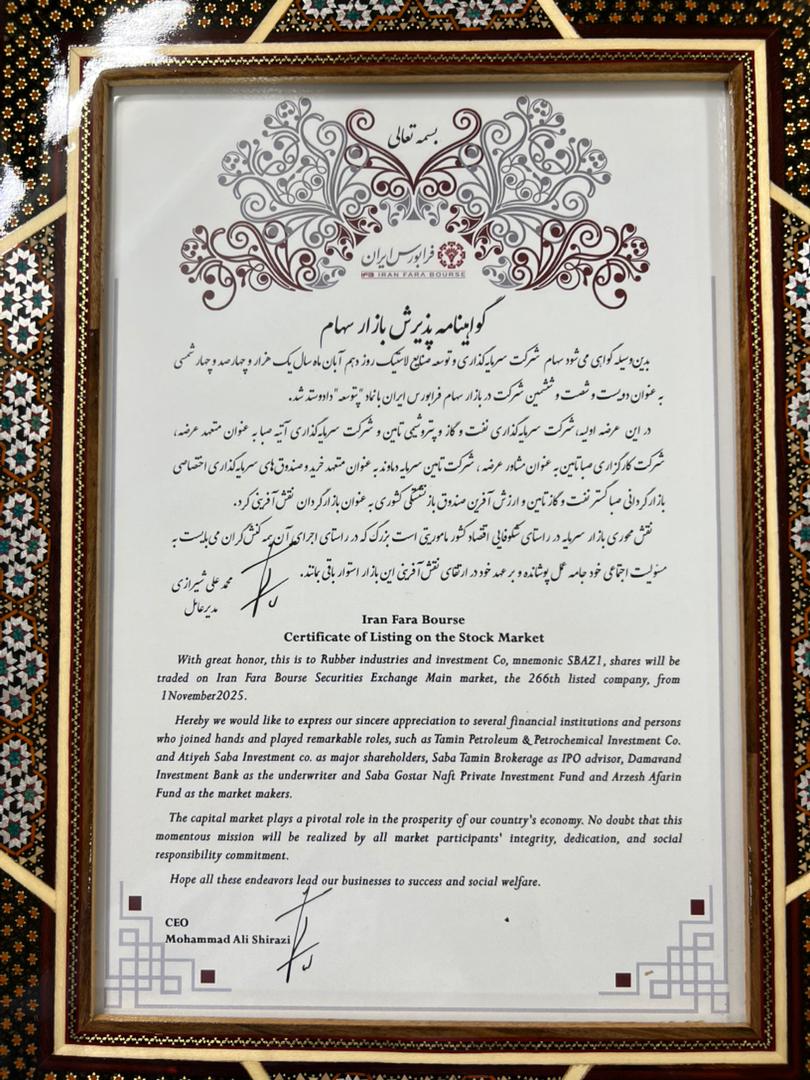 بسمه تعالی
فرابورس ایران
IFB IRAN FARA BOURSE
گواهینامه پذیرش بازار سهام
بدین‌وسیله گواهی می‌شود سهام شرکت سرمایه‌گذاری و توسعه صنایع لاستیک روز دهم آبان ماه سال یک هزار و چهارصد و چهار شمسی
به عنوان دویست و شصت و ششمین شرکت در بازار سهام فرابورس ایران با نماد "پتوسعه" دادوستد شد.
در این عرضه اولیه، شرکت سرمایه‌گذاری نفت و گاز و پتروشیمی تامین و شرکت سرمایه‌گذاری آتیه صبا به عنوان متعهد عرضه،
شرکت کارگزاری صبا تامین به عنوان مشاور عرضه، شرکت تامین سرمایه دماوند به عنوان متعهد خرید و صندوق‌های سرمایه‌گذاری اختصاصی
بازارگردانی صبا گستر نفت و گاز تامین و ارزش آفرین صندوق بازنشستگی کشوری به عنوان بازارگردان نقش آفرینی کرد.
نقش محوری بازار سرمایه در راستای شکوفایی اقتصاد کشور ماموریتی است بزرگ که در راستای اجرای آن همه کنش‌گران می‌بایست به
مسئولیت اجتماعی خود جامه عمل پوشانده و بر عهد خود در ارتقای نقش آفرینی این بازار استوار باقی بمانند.
محمد علی شیرازی
مدیرعامل
Iran Fara Bourse
Certificate of Listing on the Stock Market
With great honor, this is to Rubber industries and investment Co, mnemonic SBAZ1, shares will be
traded on Iran Fara Bourse Securities Exchange Main market, the 266th listed company, from
1November2025.
Hereby we would like to express our sincere appreciation to several financial institutions and persons
who joined hands and played remarkable roles, such as Tamin Petroleum & Petrochemical Investment Co.
and Atiyeh Saba Investment co. as major shareholders, Saba Tamin Brokerage as IPO advisor, Damavand
Investment Bank as the underwriter and Saba Gostar Naft Private Investment Fund and Arzesh Afarin
Fund as the market makers.
The capital market plays a pivotal role in the prosperity of our country's economy. No doubt that this
momentous mission will be realized by all market participants' integrity, dedication, and social
responsibility commitment.
Hope all these endeavors lead our businesses to success and social welfare.
CEO
Mohammad Ali Shirazi